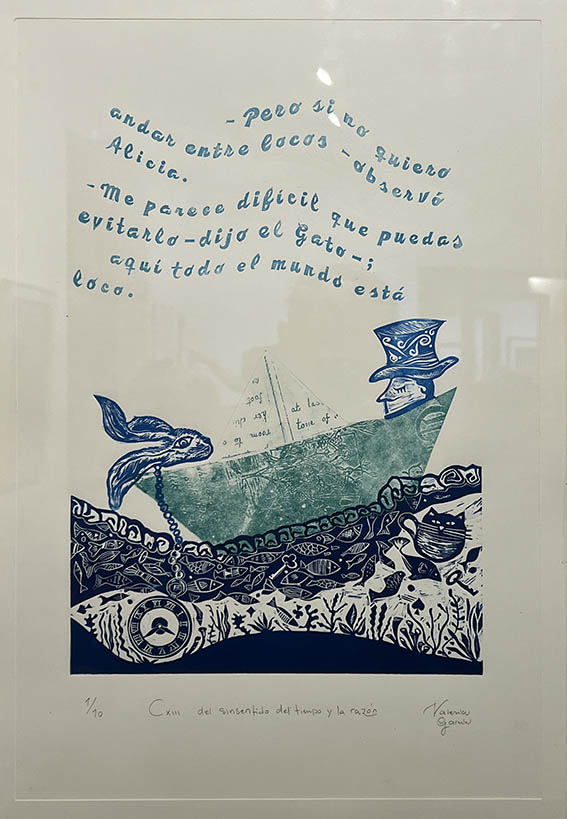 -Pero si no quiero
andar entre locos -observó
Alicia.
-Me parece difícil que puedas
evitarlo-dijo el Gato-;
aquí todo el mundo está
loco.
at la
tone of
room to
her chi
foot
1/10
Cxiii del sinsentido del tiempo y la razón
Valeria
García